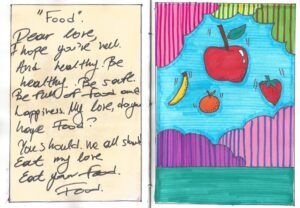 "Food".
Dear love,
I hope you're well.
And healthy. Be
healthy. Be safe.
Be full of food and
happiness. My love, do you
hope Food?
You should. We all should
Eat my love
Eat your food.
Food.